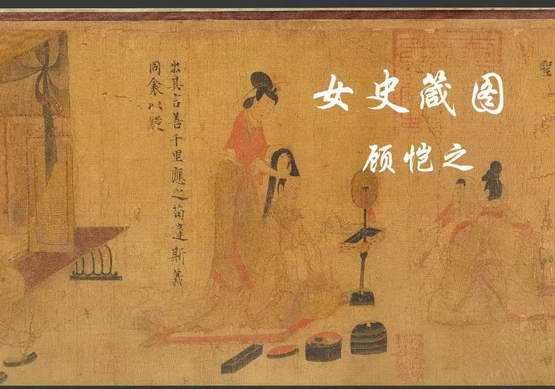 女史箴图
顾恺之
聖
出其言善千里應之苟違斯義
同衾以疑